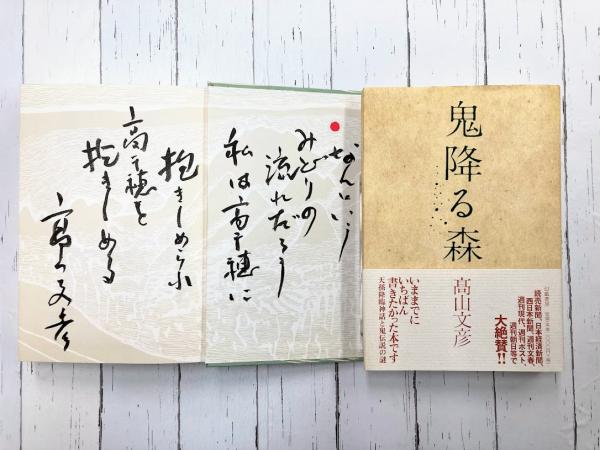 なんという
みどりの
流れだろう
私は高千穂に
抱きしめられ
高千穂を
抱きしめる
髙山文彦
鬼降る森
髙山文彦
いままでに
いちばん
書きたかった本です
天孫降臨神話と鬼伝説の謎
読売新聞、日本経済新聞、
西日本新聞、週刊文春、
週刊現代、週刊ポスト、
週刊朝日等で
大絶賛!!